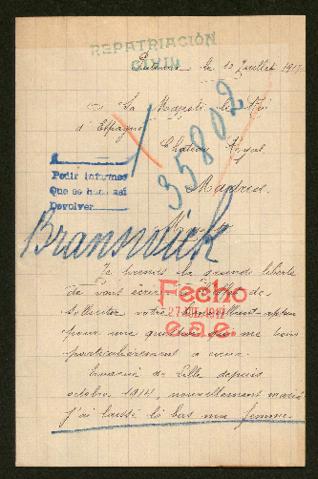 REPATRIACIÓN
CIVIL
le 10 Juillet 1917
A Sa Majesté le Roi
d'Espagne
Château Royal
Madrid
35802
Pedir informes
Que se haga así
Devolver
Branswick
Je prends la grande liberté
de vous écrire
solliciter votre bienveillant appui
pour une question qui me tient
particulièrement à cœur.
Fecho
27 JUL 1917
e.a.e.
Evacué de Lille depuis
octobre 1914, nouvellement marié
j'ai laissé là bas ma femme.